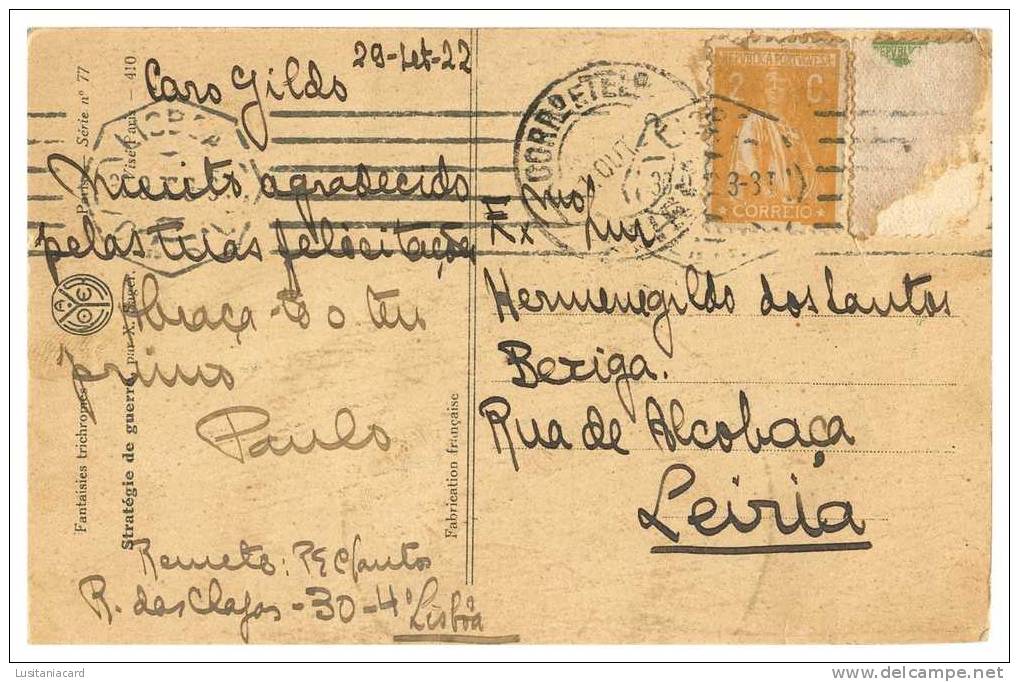 29-Set-22
Caro Gildo
Muito agradecido
pelas tuas felicitações
Abraça-te o teu
primo
Paulo
Remete: P E Santos
R. das Chagas - 30-4º Lisboa
Exmo Snr
Hermenegildo dos Santos
Beziga.
Rua de Alcobaça
Leiria
REPUBLICA PORTUGUESA
2 C.
CORREIO
REPUBL
CORR. E TELEG
OUT
LISBOA
Fantaisies trichromes
Paris
Série nº 77
Stratégie de guerre, par X. Sager.
Visé Paris
410
Fabrication française
Lusitaniacard
www.delcampe.net